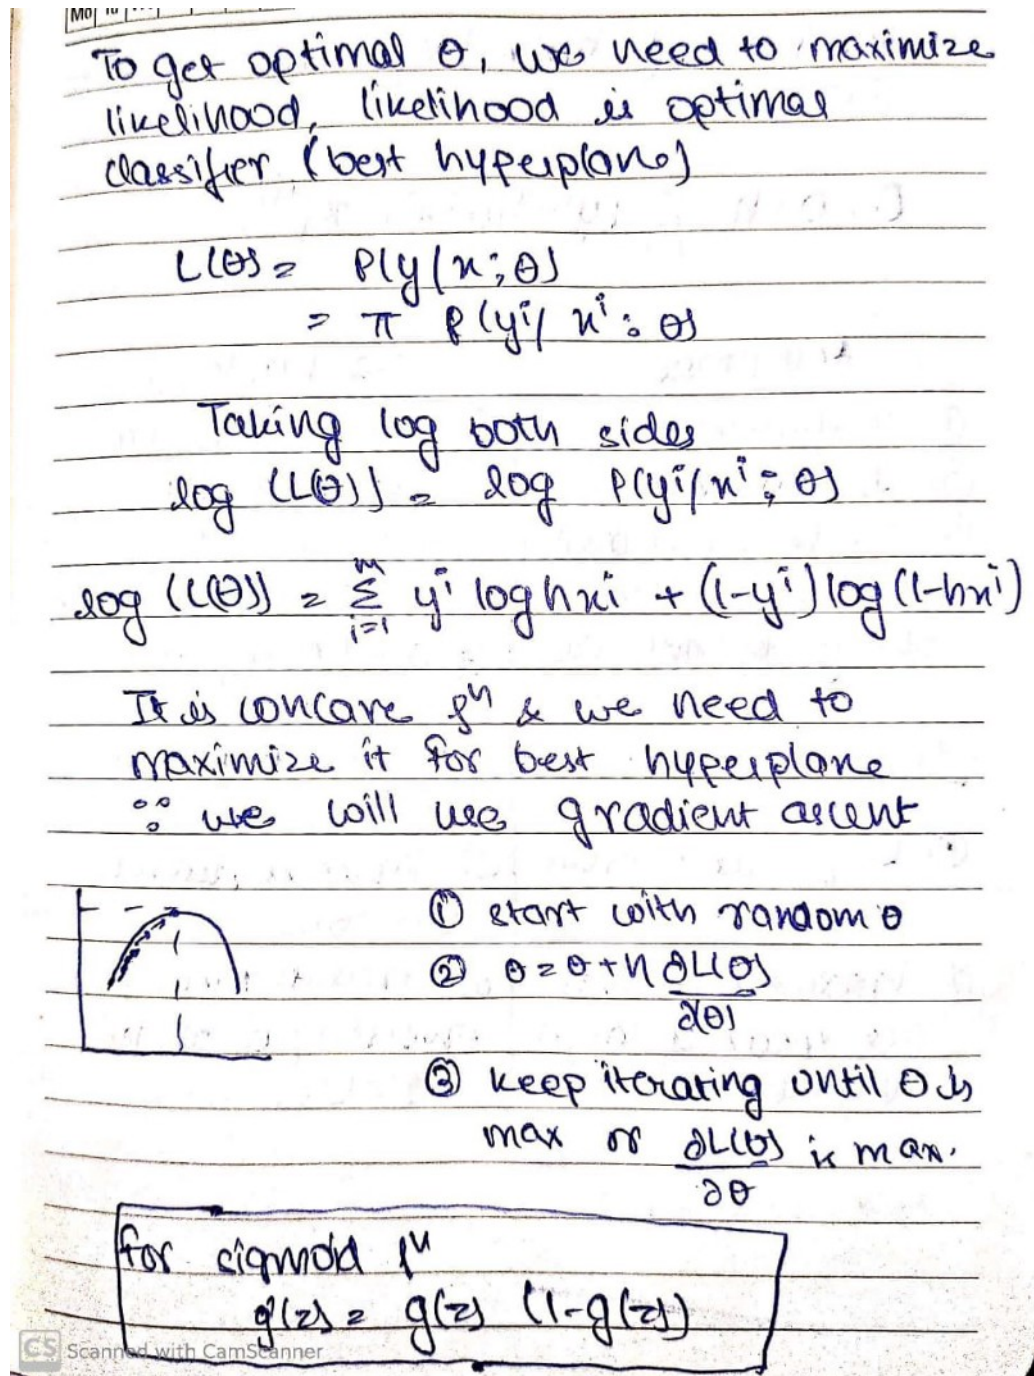 Mo Tu
To get optimal θ, we need to maximize
likelihood, likelihood is optimal
classifier (best hyperplane)
L(θ) = P(y/x; θ)
= π P(yⁱ/xⁱ; θ)
Taking log both sides
log (L(θ)) = log P(yⁱ/xⁱ; θ)
log (L(θ)) = Σ_{i=1}^{m} yⁱ log hxⁱ + (1-yⁱ) log (1-hxⁱ)
It is concave fⁿ & we need to
maximize it for best hyperplane
∴ we will use gradient ascent
① start with random θ
② θ = θ + η ∂L(θ)/∂(θ)
③ keep iterating until θ is
max or ∂L(θ)/∂θ is max.
for sigmoid fⁿ
g'(z) = g(z) (1-g(z))
CS Scanned with CamScanner